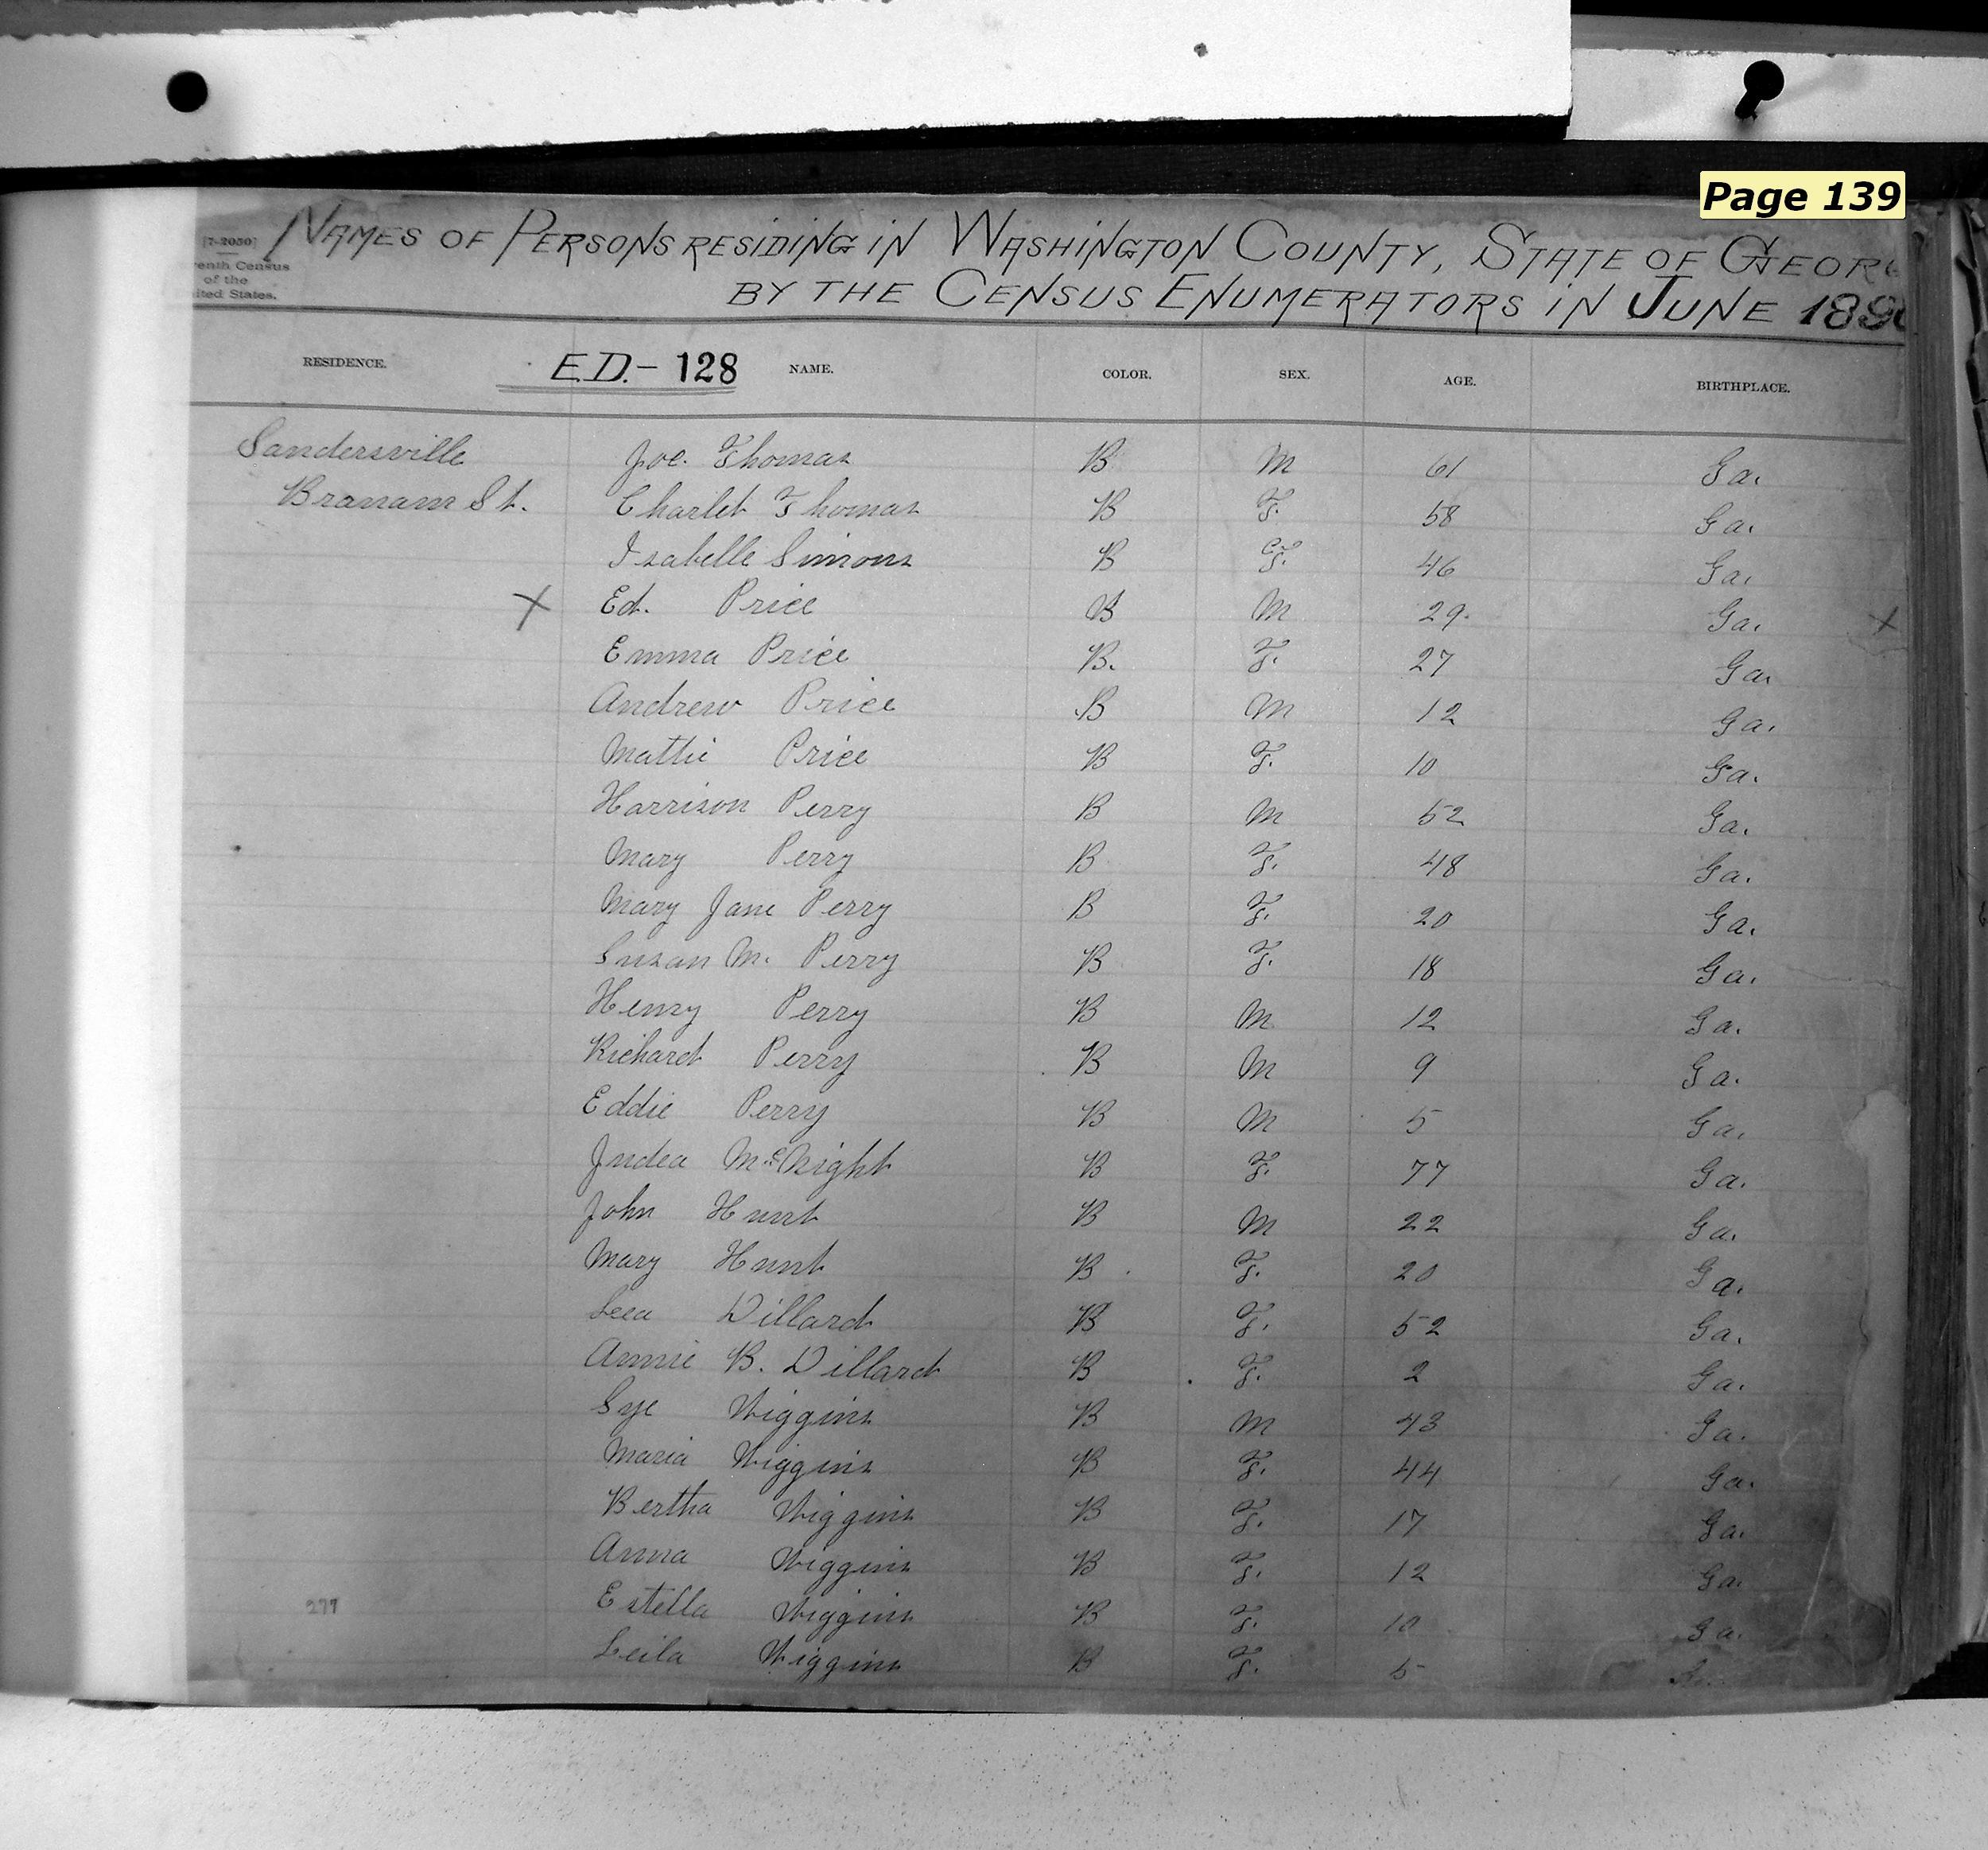 Page 139
[7-2050]
enth Census
of the
ited States.
NAMES OF PERSONS RESIDING IN WASHINGTON COUNTY, STATE OF GEOR
BY THE CENSUS ENUMERATORS IN JUNE 189
RESIDENCE. E.D.- 128 NAME. COLOR. SEX. AGE. BIRTHPLACE.
Sandersville Joe. Thomas B M 61 Ga.
Branam St. Charlet Thomas B F. 58 Ga.
Isabelle Simons B F. 46 Ga.
X Ed. Price B M 29. Ga. X
Emma Price B. F. 27 Ga.
Andrew Price B M 12 Ga.
Mattie Price B F. 10 Ga.
Harrison Perry B M 52 Ga.
Mary Perry B F. 48 Ga.
Mary Jane Perry B F. 20 Ga.
Susan M. Perry B F. 18 Ga.
Henry Perry B M 12 Ga.
Richard Perry B M 9 Ga.
Eddie Perry B M 5 Ga.
Judea McNight B F. 77 Ga.
John Hunt B M 22 Ga.
Mary Hunt B F. 20 Ga.
Leea Dillard B F. 52 Ga.
Annie B. Dillard B F. 2 Ga.
Sye Wiggins B M 43 Ga.
Maria Wiggins B F. 44 Ga.
Bertha Wiggins B F. 17 Ga.
Anna Wiggins B F. 12 Ga.
277 Estella Wiggins B F. 10 Ga.
Leila Wiggins B F. 5